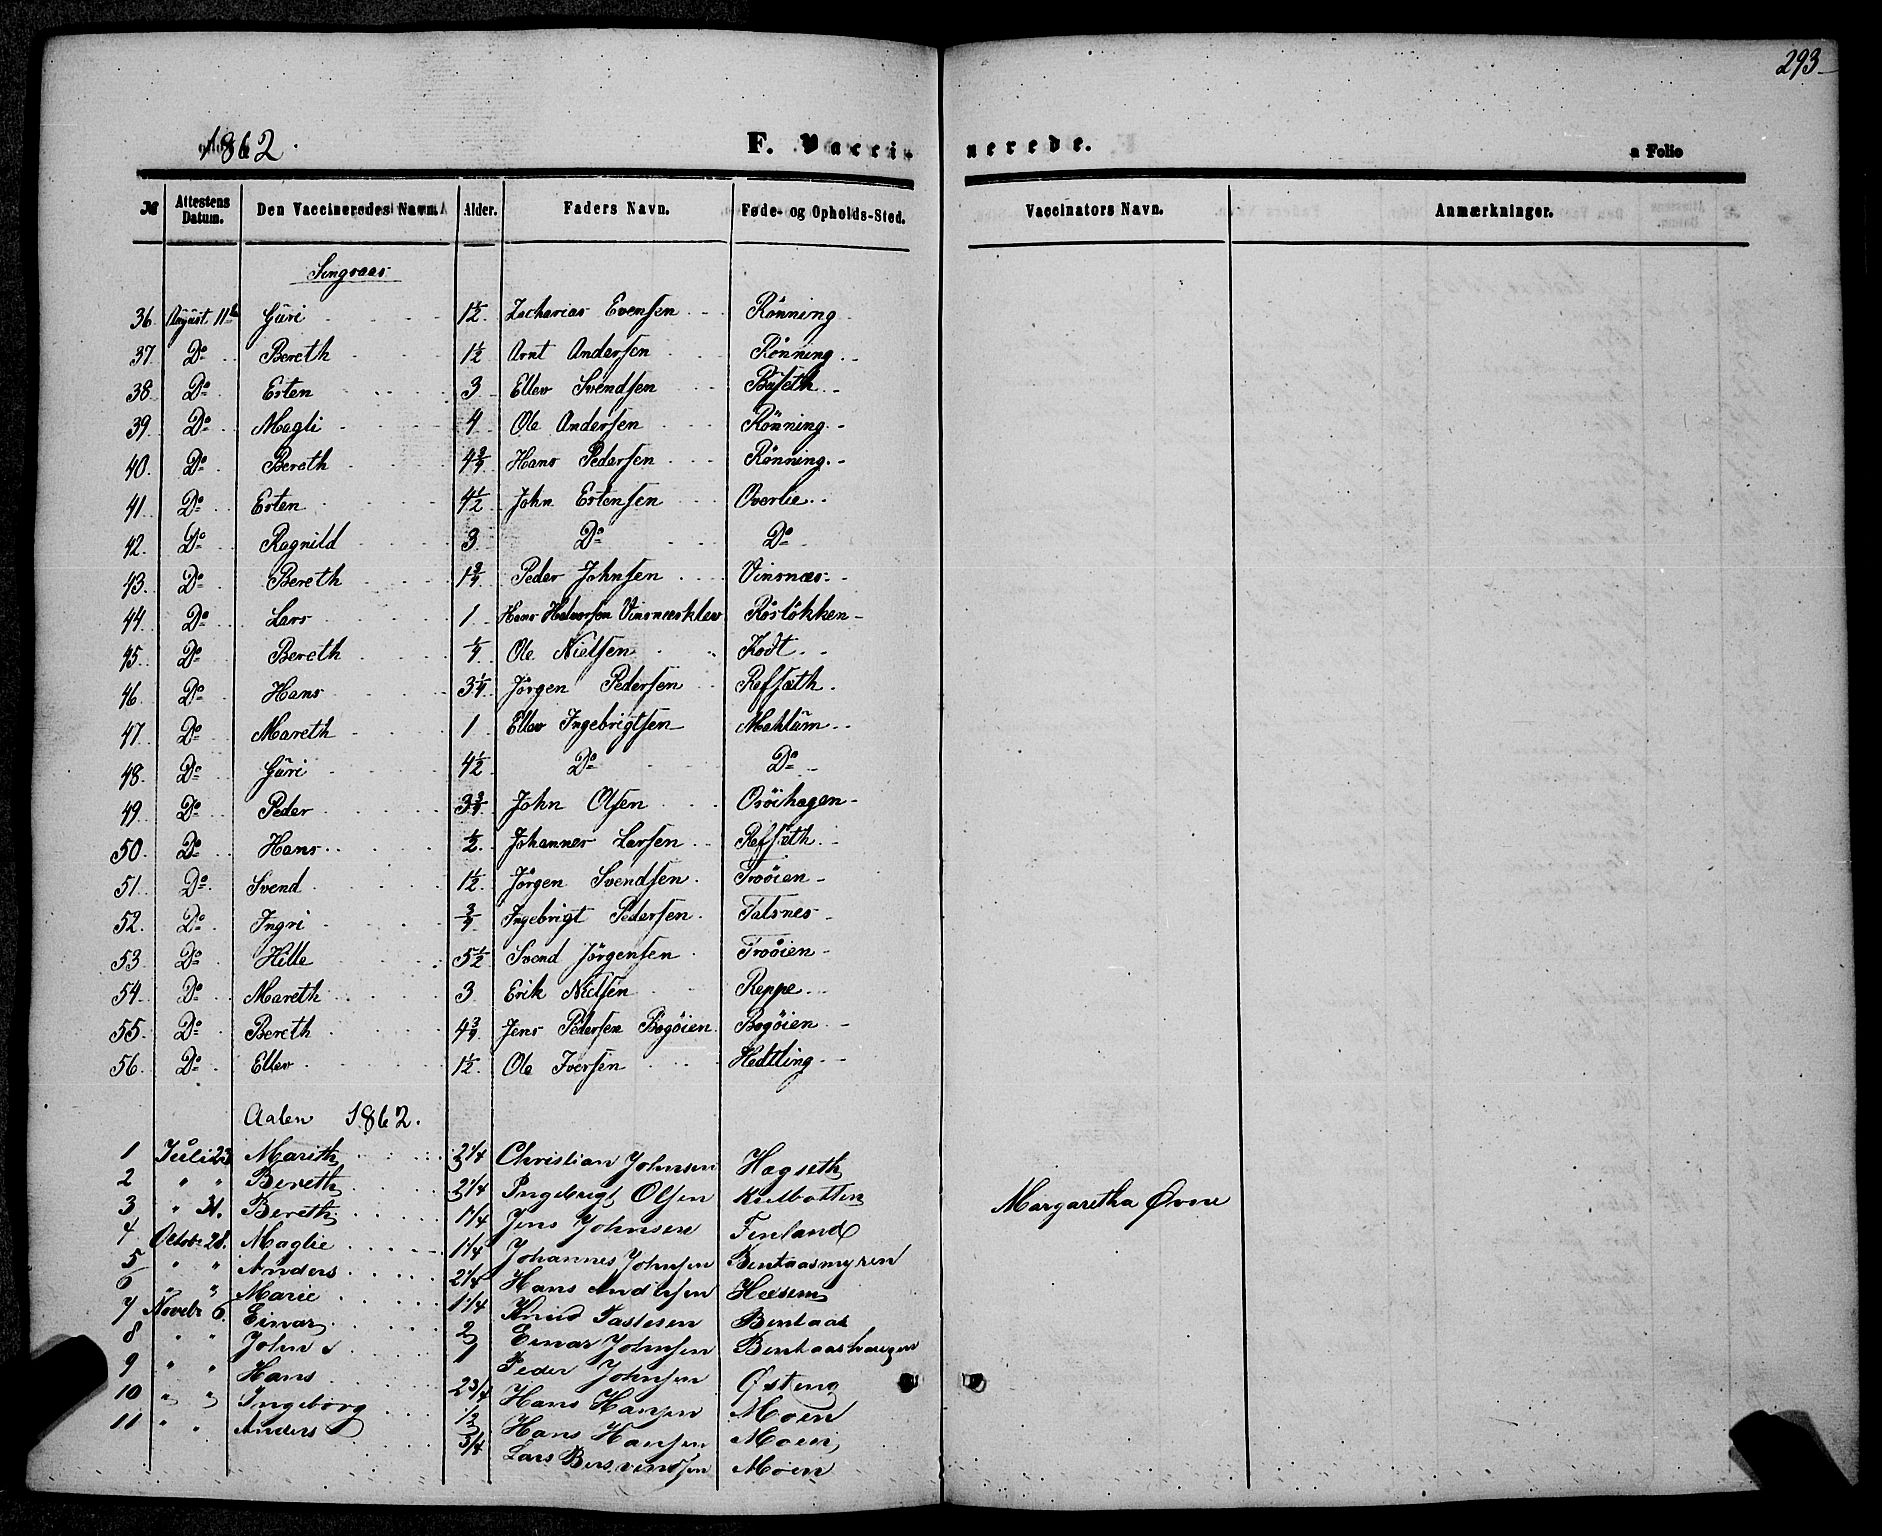 293
1862.
F. Vaccinerede.
a Folio
№ Attestens Datum. Den Vaccineredes Navn. Alder. Faders Navn. Føde- og Opholds-Sted. Vaccinators Navn. Anmærkninger.
Singsaas
36. August 11te Guri 1½ Zacharias Evensen Rönning
37. Do Bereth 1½ Arnt Andersen Rönning
38. Do Esten 3 Ellev Svendsen
39. Do Magli 4 Ole Andersen Rönning
40. Do Bereth 4¾ Hans Pedersen Rönning
41. Do Esten 4½ John Estensen Overlie
42. Do Ragnild 3 Do Do
43. Do Bereth 1¾ Peder Johnsen Vinsnæs
44. Do Lars 1 Hans Halvorsen Vinsnæsklev Röslökken
45. Do Bereth ¼ Ole Nielsen Kodt
46. Do Hans 3¼ Jörgen Pedersen Refsæth
47. Do Mareth 1 Ellev Ingebrigtsen Mehlum
48. Do Guri 4½ Do Do
49. Do Peder 3¾ John Olsen Osöihagen
50. Do Hans ½ Johannes Larsen Refsæth
51. Do Svend 1½ Jörgen Svendsen Troöien
52. Do Ingri ¾ Ingebrigt Pedersen Talsnes
53. Do Hille 5½ Svend Jörgensen Troöien
54. Do Mareth 3 Erik Nielsen Reppe
55. Do Bereth 4¾ Jens Pedersen Bogöien Bogöien
56. Do Ellev 1½ Ole Iversen Hedtling
Aalen 1862.
1 Juli 23 Marith 2¼ Christian Johnsen Hagseth
2 " " Bereth 2¼ Ingebrigt Olsen
3 " 31. Bereth 1¼ Jens Johnsen Finland Margaretha Øvne
4 Octobr 28. Maglie 1¼ Johannes Johnsen Bentaasmyren
5 " " Anders 2¼ Hans Andersen
6 " " Marie 1¼ Knud Bentaas
7 Novebr 6. Einar 2 Einar Johnsen Bentaashaugen
8 " " John 1 Peder Johnsen Østeng
9 " " Hans 2¾ Hans Hansen Moen
10 " " Ingeborg ½ Hans Hansen Moen
11 " " Anders ¾ Lars Moen